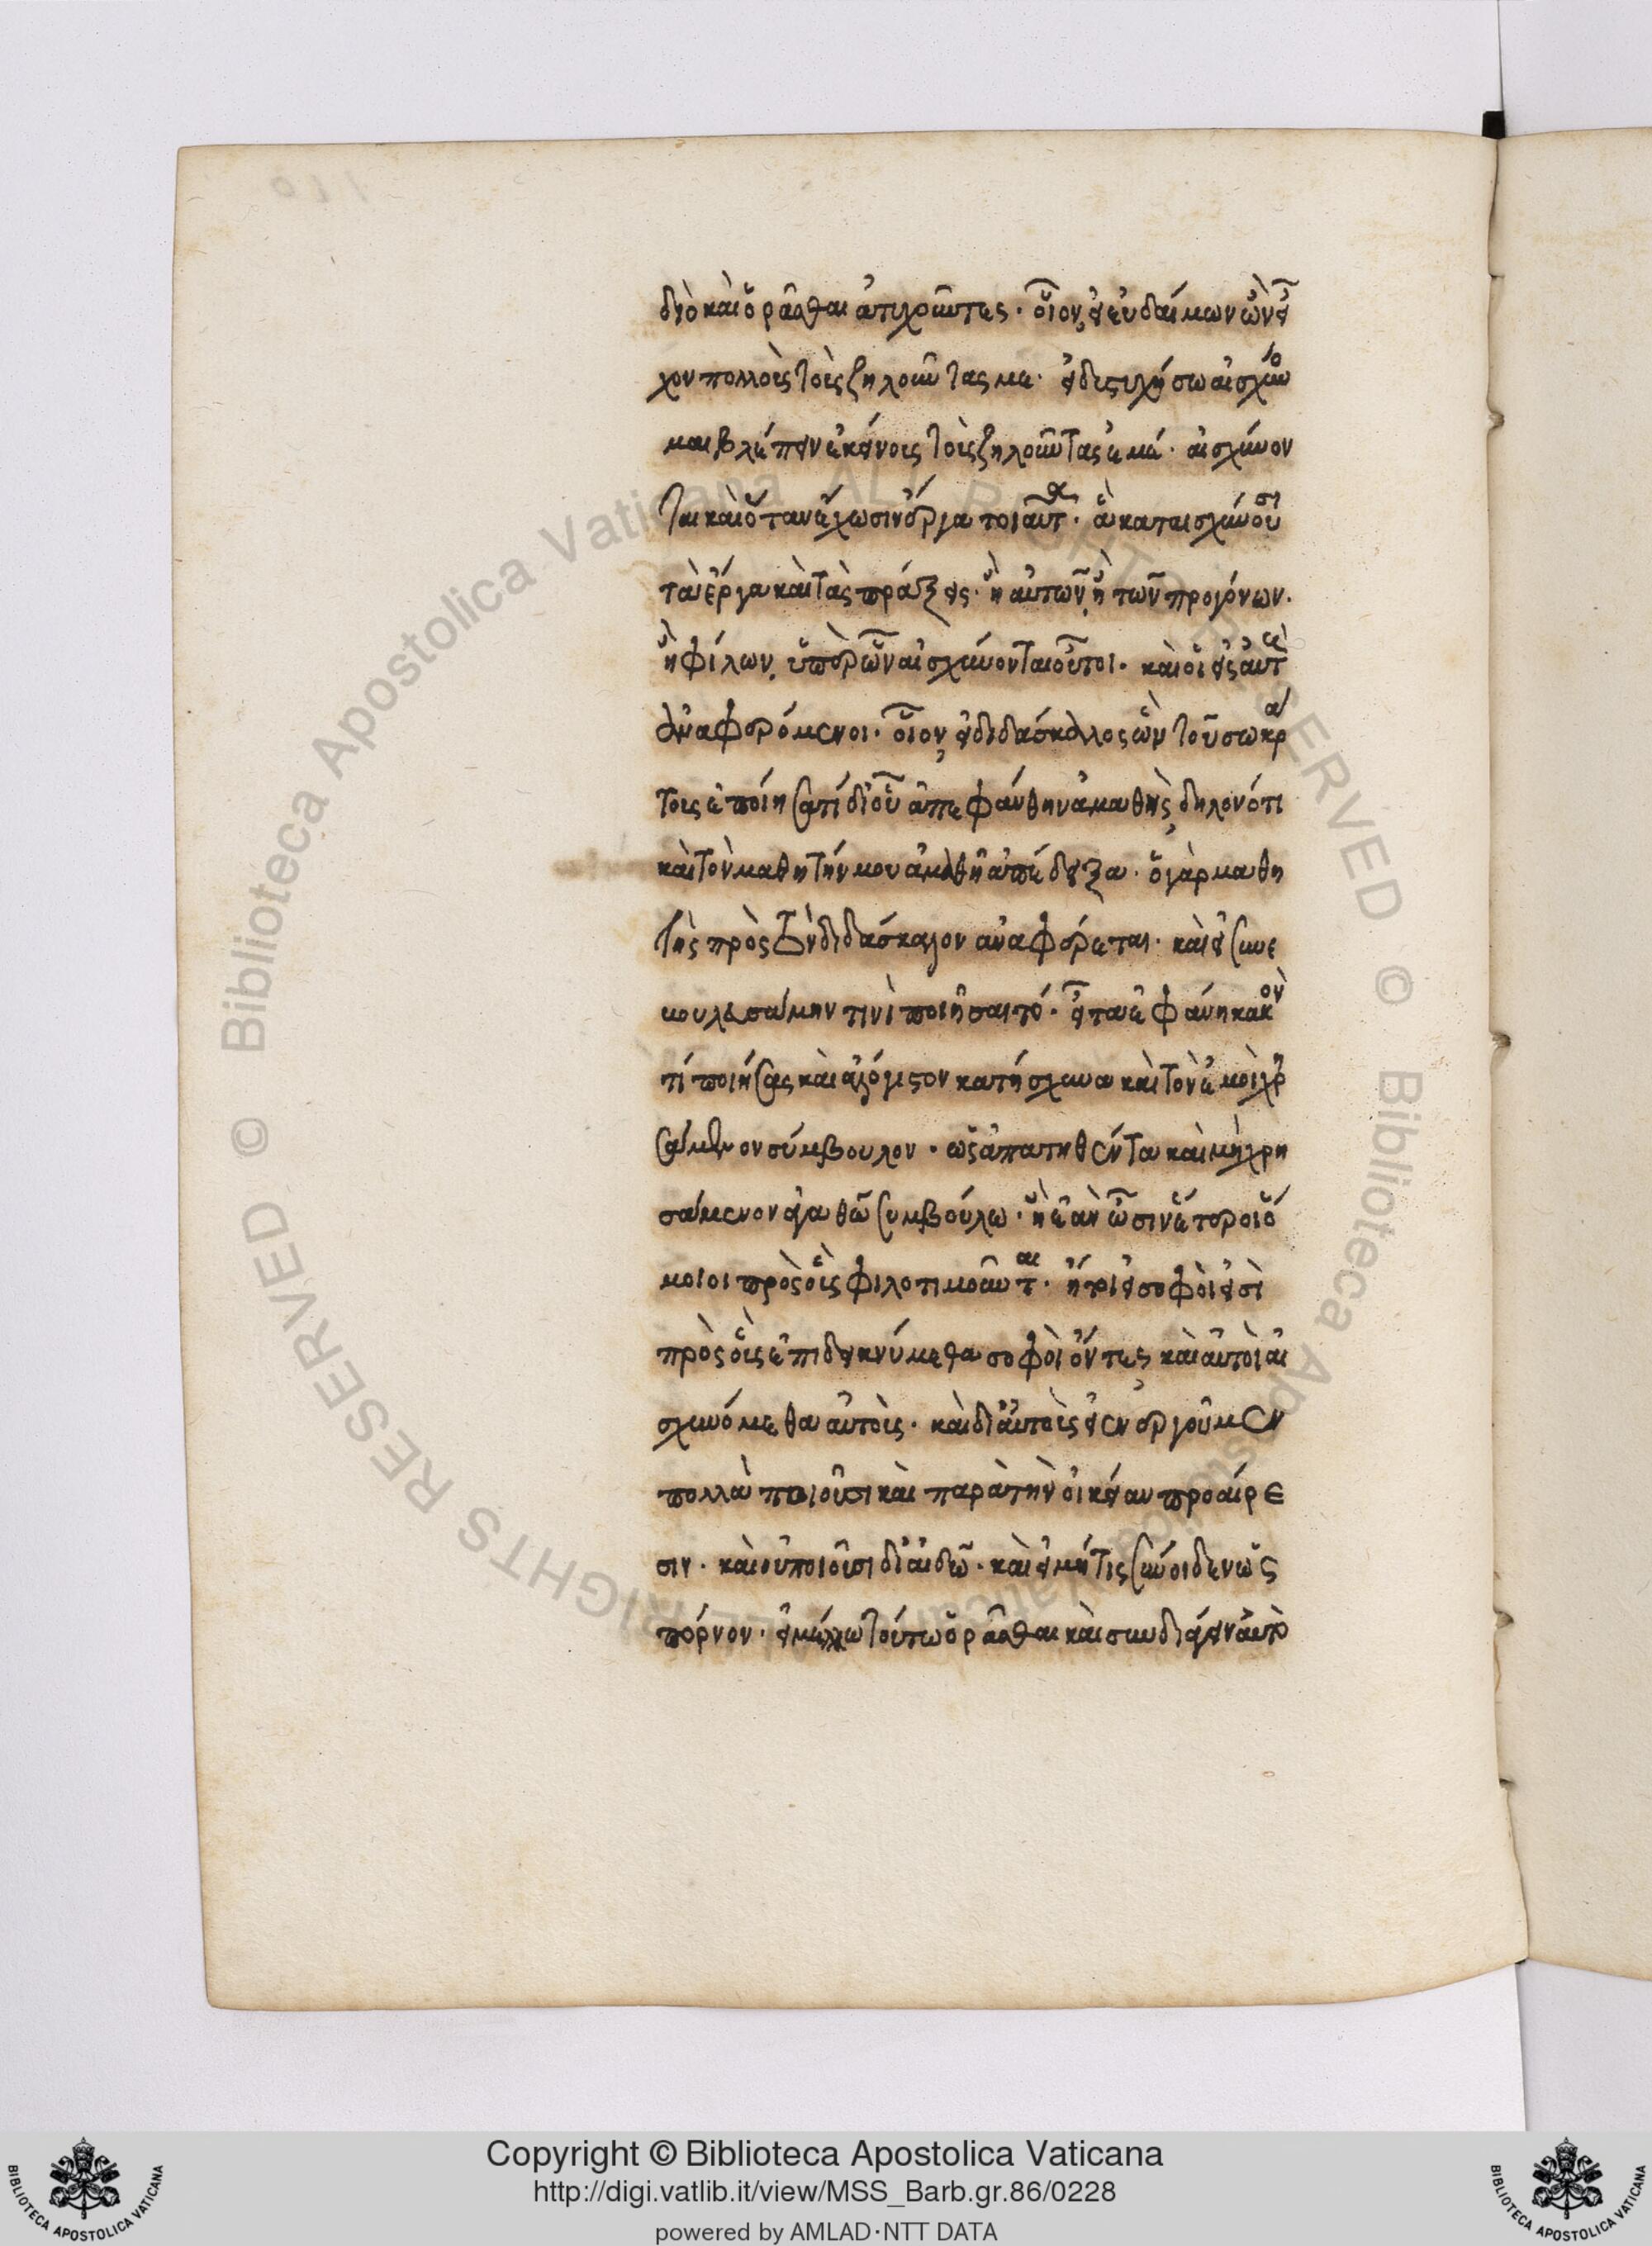 διὸ καὶ ὁρᾶσθαι ἀτυχοῦντες. οἷον, εἰ εὐδαίμων ὢν εἶ
χον πολλοὺς τοὺς ζηλοῦντάς με. εἰ δυστυχήσω αἰσχύνο
μαι βλέπειν ἐκείνους τοὺς ζηλοῦντας ἐμέ. αἰσχύνον
ται καὶ ὅταν ἔχωσιν ἔργα τοιαῦτα. ἃ καταισχύνουσι
τὰ ἔργα καὶ τὰς πράξεις. ἢ αὐτῶν, ἢ τῶν προγόνων.
ἢ φίλων, ὑπὲρ ὧν αἰσχύνονται οὗτοι. καὶ οἱ εἰς αὐτοὺς
ἀναφερόμενοι. οἷον, εἰ διδάσκαλος ὢν τοῦ σωκρά
τους ἐποίησά τι δι' οὗ ἀπεφάνθην ἀμαθὴς, δηλονότι
καὶ τὸν μαθητήν μου ἀμαθῆ ἀπέδειξα. ὁ γὰρ μαθη
τὴς πρὸς τὸν διδάσκαλον ἀναφέρεται. καὶ εἰ συνε
βουλευσάμην τινὶ ποιῆσαι τό. εἶτα ἐφάνη κακὸν
τί ποιήσας καὶ ἀλόγιστον κατήσχυνα καὶ τὸν ἐμοὶ χρη
σάμενον σύμβουλον. ὡς ἀπατηθέντα καὶ μὴ χρη
σάμενον ἀγαθῷ συμβούλῳ. ἢ ἐὰν ὦσιν ἕτεροι ὅ
μοιοι πρὸς οὓς φιλοτιμοῦνται. ἤτοι εἰ σοφοὶ εἰσὶ
πρὸς οὓς ἐπιδεικνύμεθα σοφοὶ ὄντες, καὶ αὐτοὶ αἰ
σχυνόμεθα αὐτούς. καὶ δι' αὐτοὺς εἰ ἐνεργοῦμεν
πολλὰ ποιοῦσι καὶ παρὰ τὴν οἰκείαν προαίρε
σιν. καὶ οὐ ποιοῦσι δι' αἰδῶ. καὶ εἰ μή τις σύνοιδεν ὡς
πόρνον. εἰ μέλλω τούτω ὁρᾶσθαι καὶ συνδιάγειν αὐτῷ
Copyright © Biblioteca Apostolica Vaticana
http://digi.vatlib.it/view/MSS_Barb.gr.86/0228
powered by AMLAD·NTT DATA